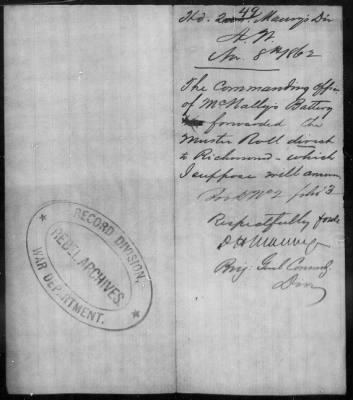 49
Hd. Maury's Div
A. W.
Nov. 8th 1862
The Commanding Offi
of McNally's Battery
forwarded the
Muster Roll direct
to Richmond - which
I suppose will answer
Respectfully forwd
D H Maury
Brig. Genl Comndg
Div
RECORD DIVISION,
REBEL ARCHIVES,
WAR DEPARTMENT.